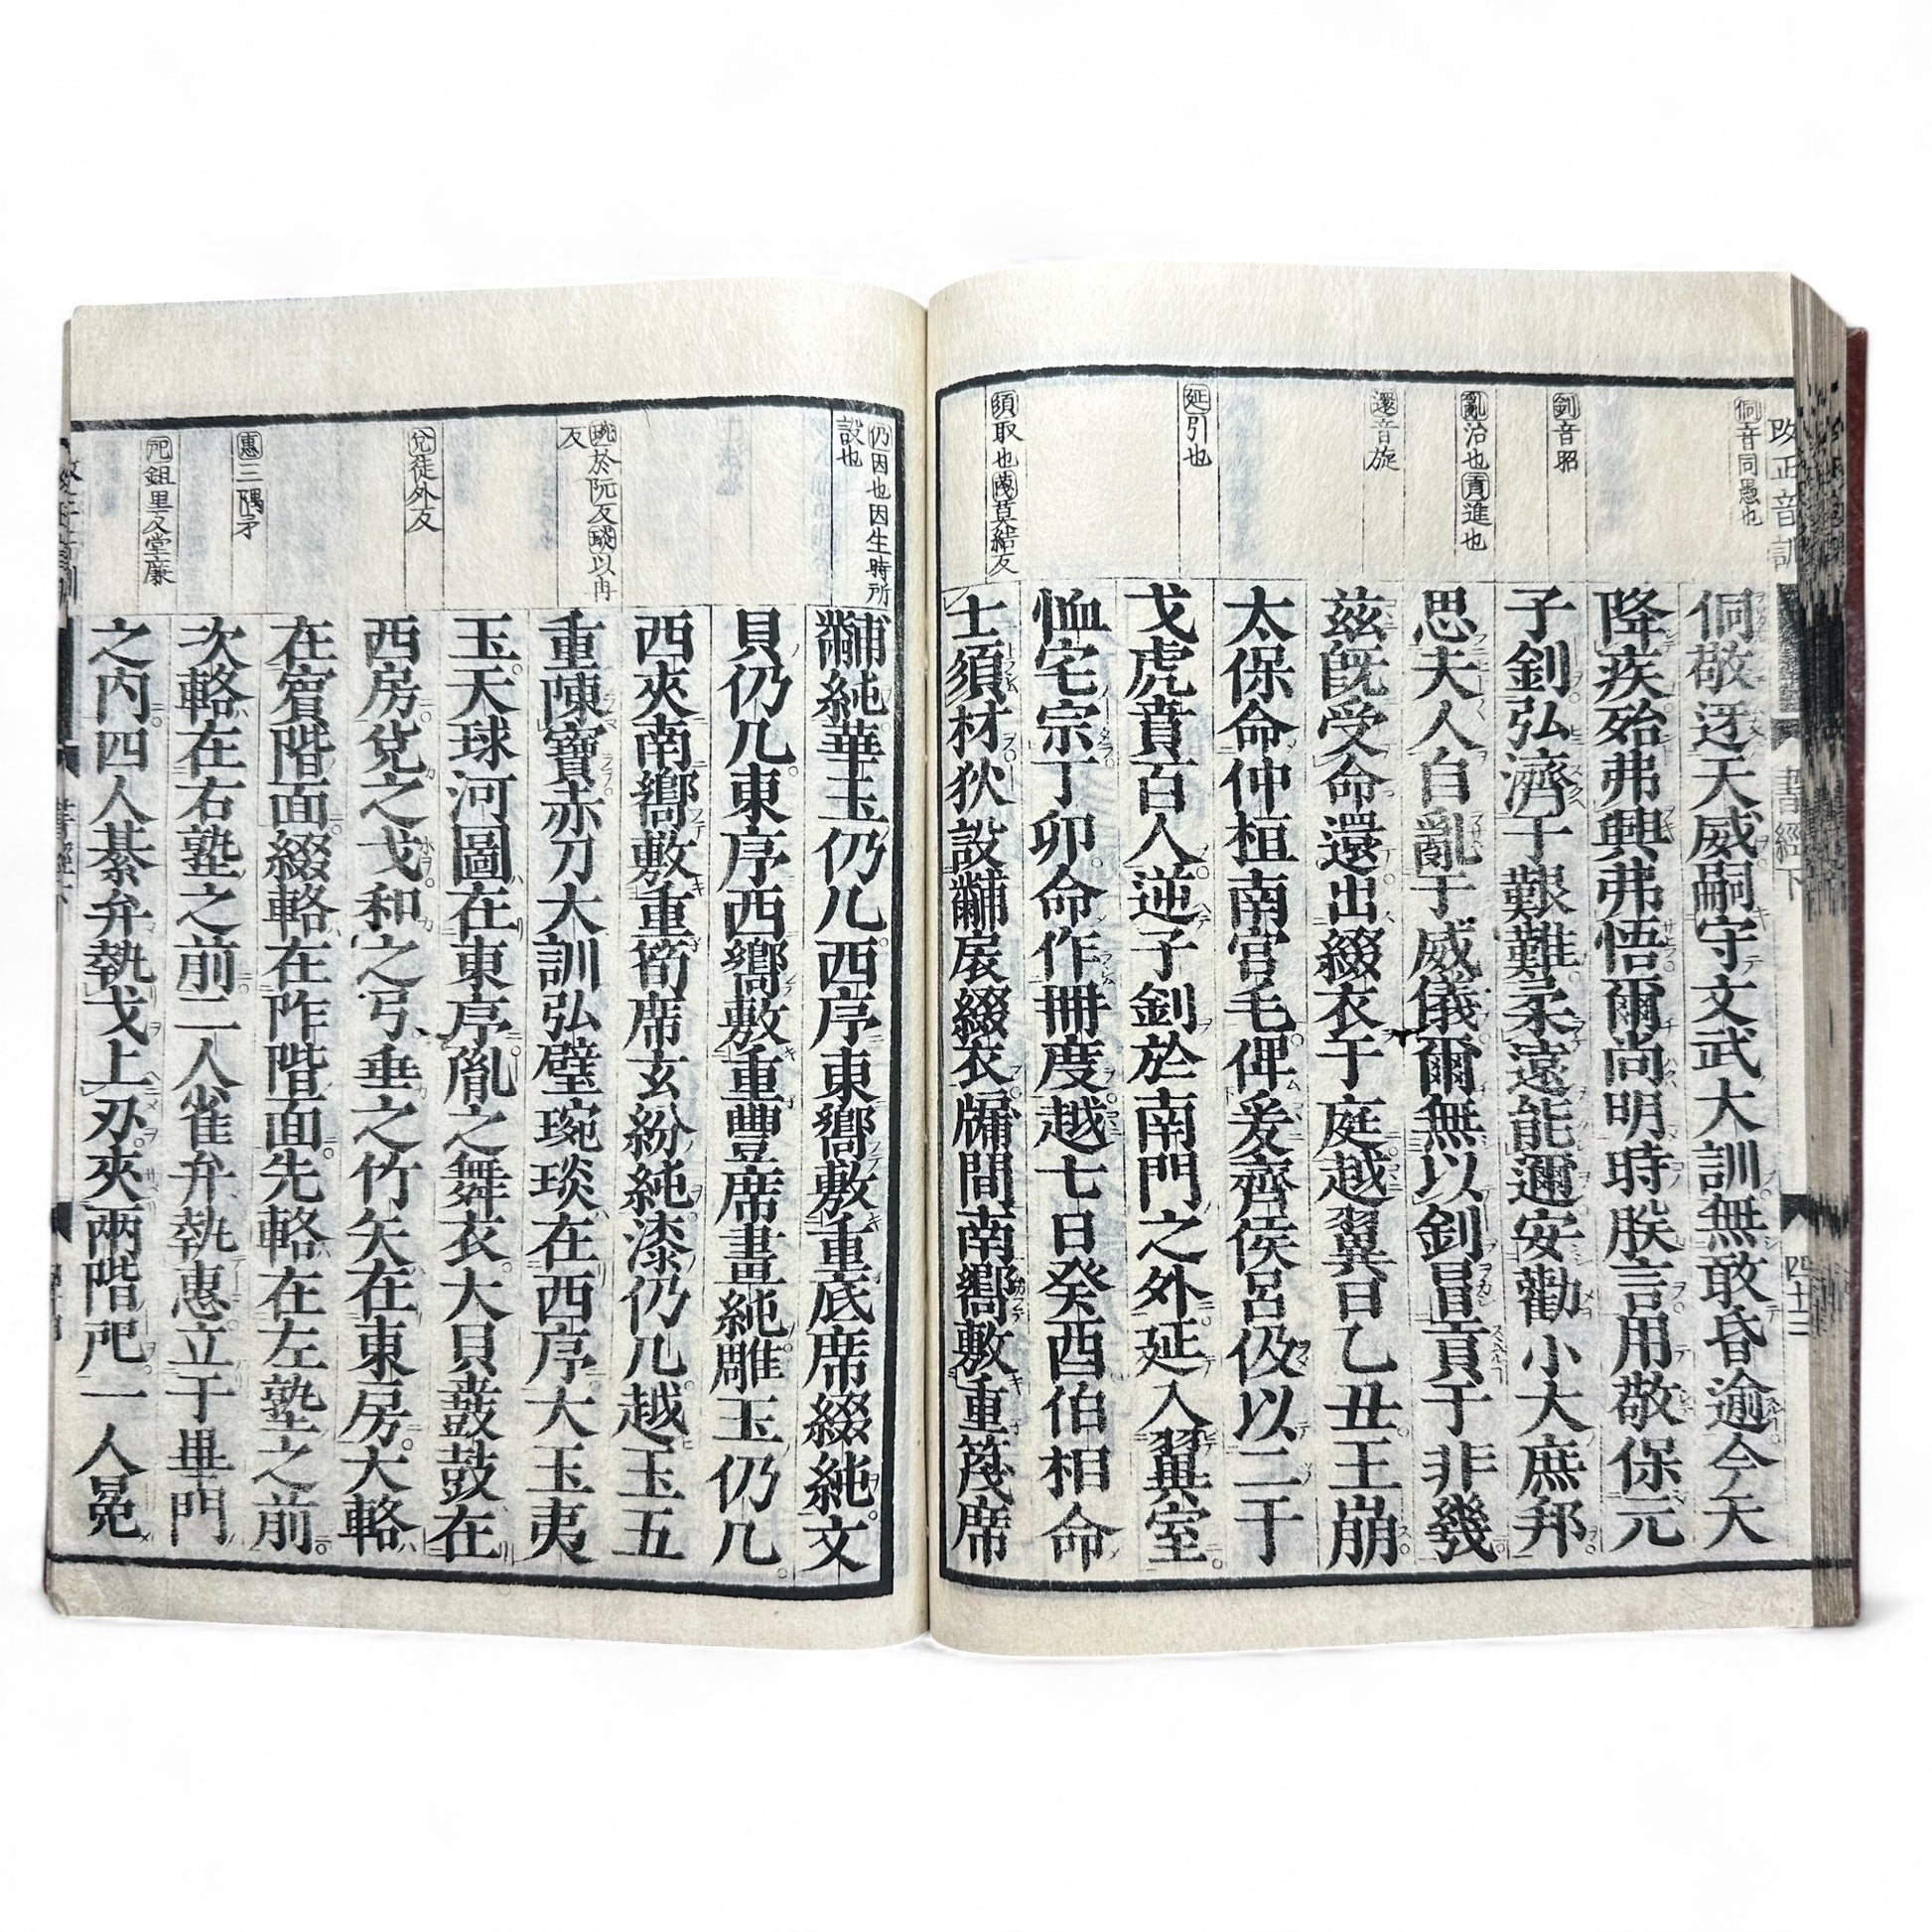 改正音訓
書經下
四十三
侗音同愚也
釗音昭
亂治也貢進也
還音旋
延引也
須取也篾莫結反
侗敬迓天威嗣守文武大訓無敢昏逾今天
降疾殆弗興弗悟爾尚明時朕言用敬保元
子釗弘濟于艱難柔遠能邇安勸小大庶邦
思夫人自亂于威儀爾無以釗冒貢于非幾
茲旣受命還出綴衣于庭越翼日乙丑王崩
太保命仲桓南宮毛俾爰齊侯呂伋以二干
戈虎賁百人逆子釗於南門之外延入翼室
恤宅宗丁卯命作冊度越七日癸酉伯相命
士須材狄設黼扆綴衣牖間南嚮敷重篾席
仍因也因生時所
設也
琬於阮反琰以冉
反
兌徒外反
惠三隅矛
戺鉏里反堂廉
黼純華玉仍几西序東嚮敷重底席綴純文
貝仍几東序西嚮敷重豐席畫純雕玉仍几
西夾南嚮敷重筍席玄紛純漆仍几越玉五
重陳寶赤刀大訓弘璧琬琰在西序大玉夷
玉天球河圖在東序胤之舞衣大貝鼖鼓在
西房兌之戈和之弓垂之竹矢在東房大輅
在賓階面綴輅在阼階面先輅在左塾之前
次輅在右塾之前二人雀弁執惠立于畢門
之內四人綦弁執戈上刃夾兩階戺一人冕